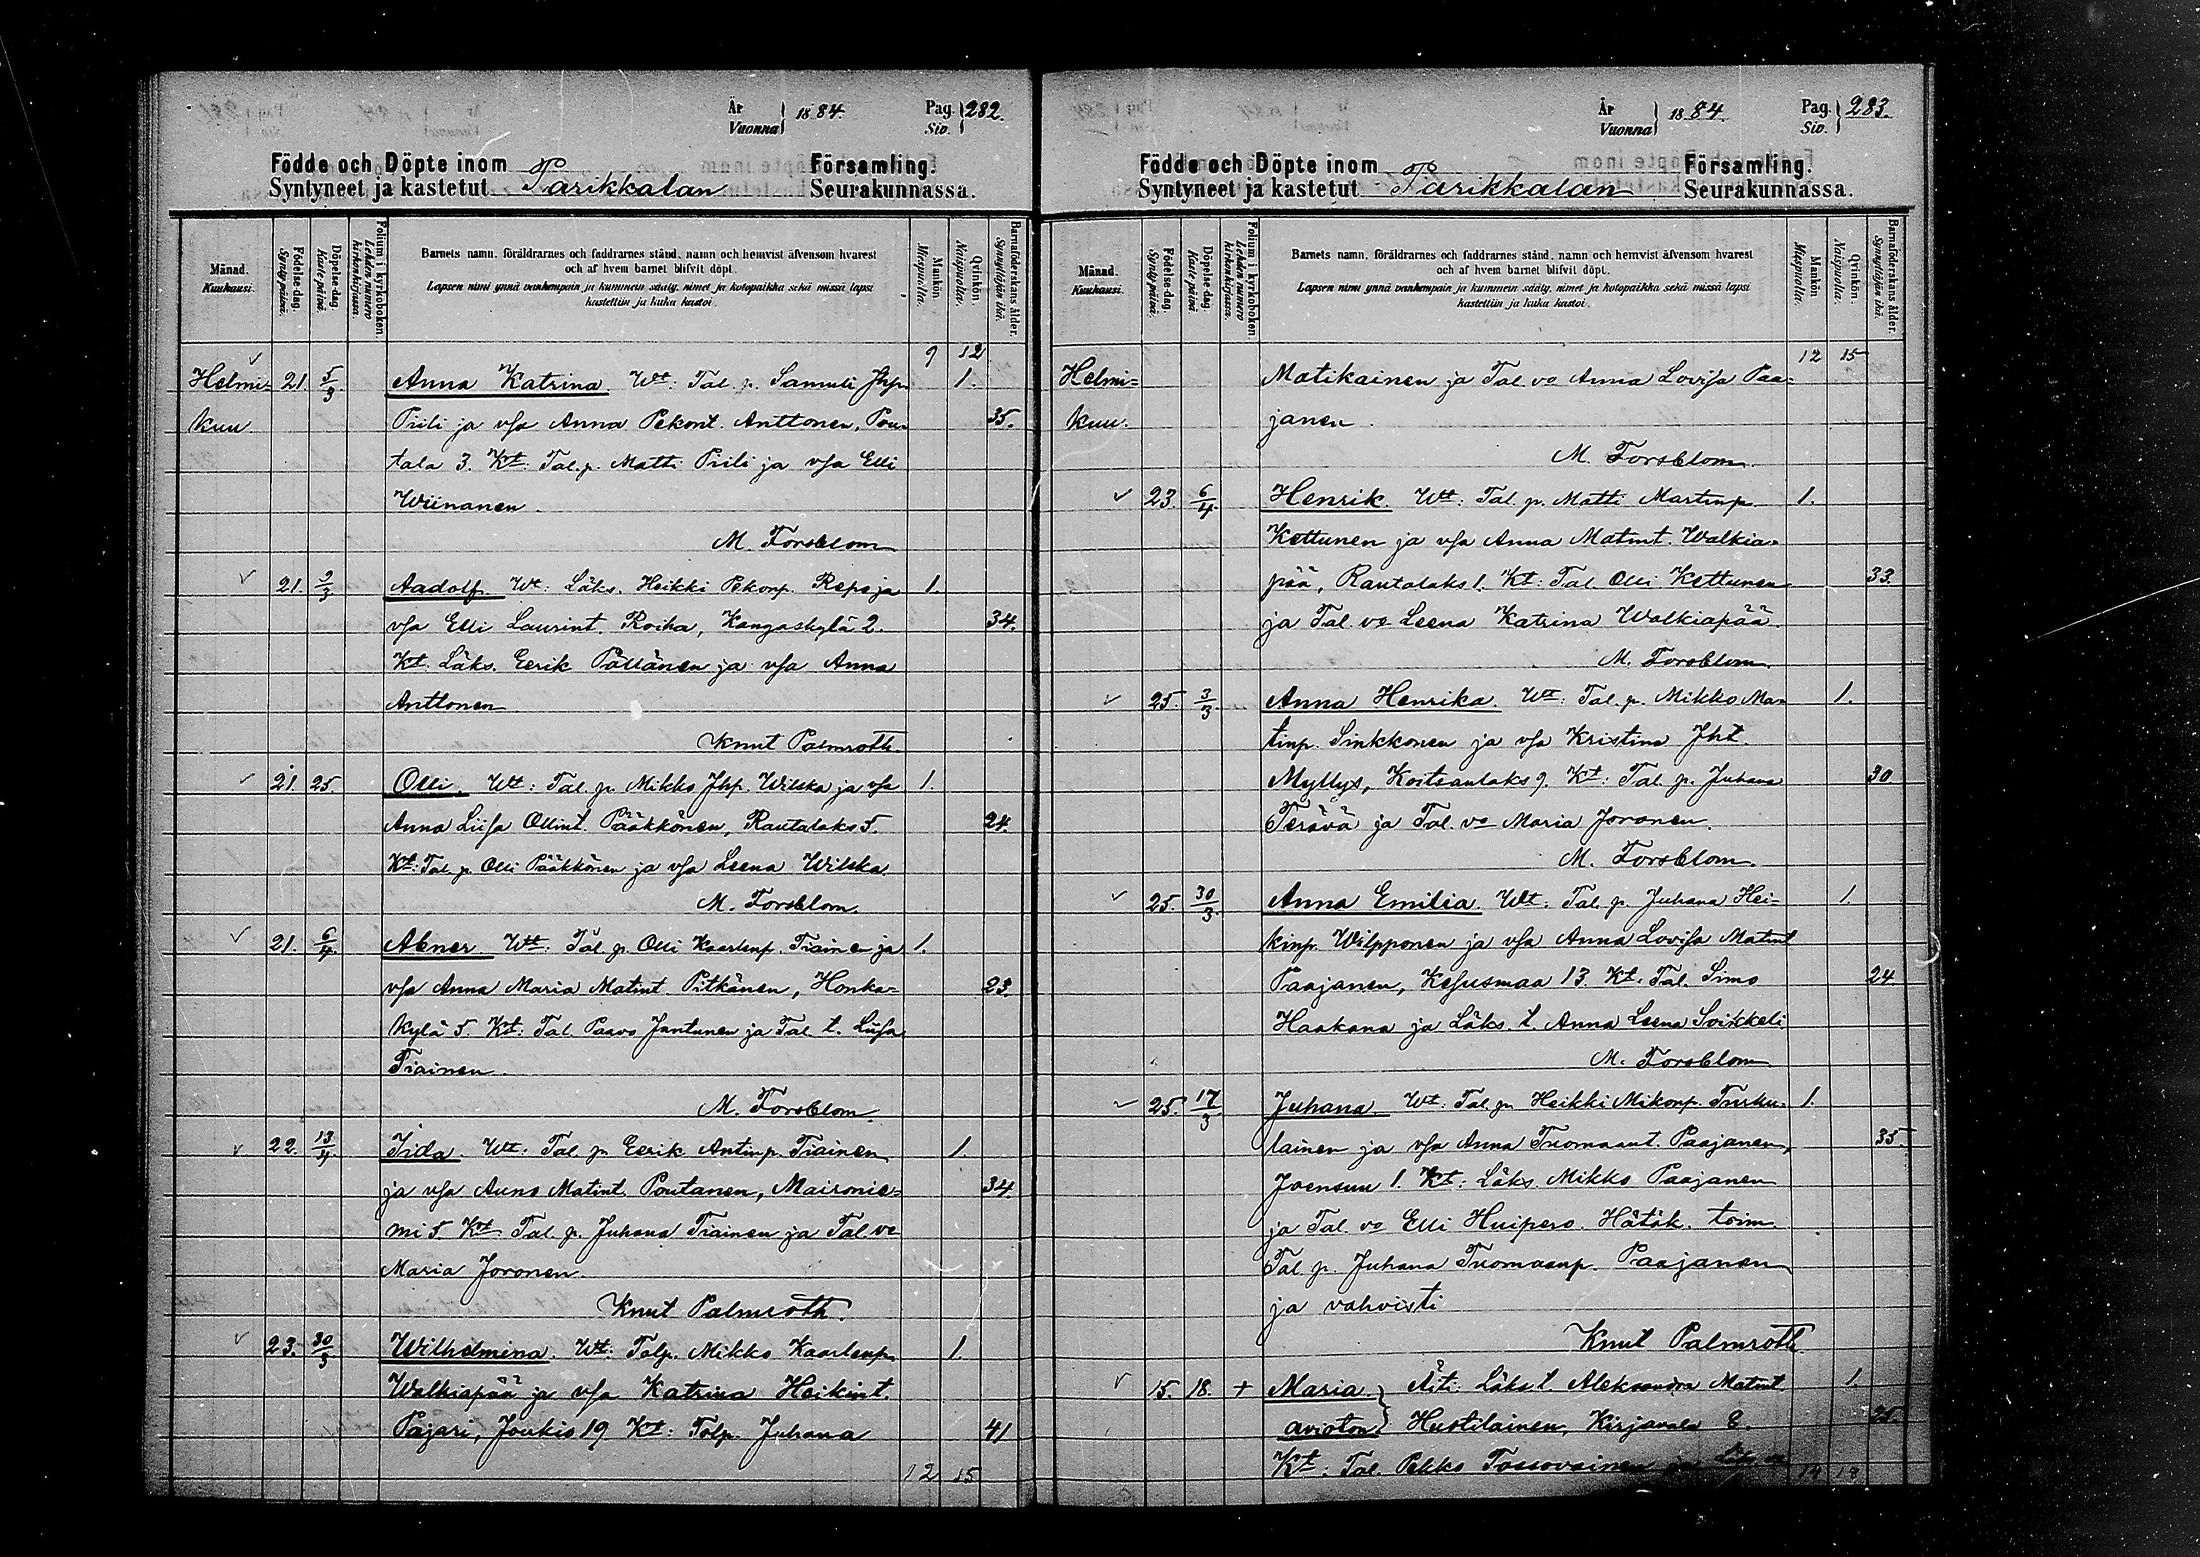 År Vuonna 1884. Pag. Siv. 282.
Födde och Döpte inom Församling.
Syntyneet ja kastetut Parikkalan Seurakunnassa.
Månad. Kuukausi.
Födelse-dag. Syntypäivä.
Döpelse-dag. Kastepäivä.
Folium i kyrkoboken. Lehden numero kirkonkirjassa.
Barnets namn, föräldrarnes och faddrarnes stånd, namn och hemvist äfvensom hvarest
och af hvem barnet blifvit döpt.
Lapsen nimi ynnä vanhempain ja kummein sääty, nimet ja kotopaikka sekä missä lapsi
kastettiin ja kuka kastoi.
Mankön Miespuolia.
Qvinkön. Naispuolia.
Barnaföderskans ålder. Synnyttäjän ikä.
9 12
Helmi= 21 5/3 Anna Katrina. Wt: Tal. p. Samuli Jhp. 1.
kuu. Piili ja vsa Anna Pekont. Anttonen, Pou- 35.
tala 3. Kt: Tal. p. Matti Piili ja vsa Elli
Wiinanen.
M. Forsblom
21. 2/3 Aadolf. Wt: Läks. Heikki Pekonp. Repo ja 1.
vsa Elli Laurint. Roiha, Kangaskylä 2. 34.
Kt. Läks. Eerik Pällänen ja vsa Anna
Anttonen
Knut Palmroth.
21. 25. Olli. Wt: Tal. p. Mikko Jhp. Wilska ja vsa 1.
Anna Liisa Ollint. Pääkkönen, Rautalaks 5. 24.
Kt: Tal. p. Olli Pääkkönen ja vsa Leena Wilska
M. Forsblom.
21. 6/4 Abner Wtt: Tal. p. Olli Kaarlenp. Tiainen ja 1.
vsa Anna Maria Matint. Pitkänen, Honka= 23.
kylä 5. Kt: Tal. Paavo Jantunen ja Tal. t. Liisa
Tiainen.
M. Forsblom
22. 13/4 Iida. Wt: Tal. p. Eerik Antinp. Tiainen 1.
ja vsa Auno Matint. Poutanen, Maironie= 34
mi 5 Kt Tal. p. Juhana Tiainen ja Tal. vo
Maria Joronen.
Knut Palmroth.
23. 30/3 Wilhelmina. Wtt: Talp. Mikko Kaarlenp. 1.
Walkiapää ja vsa Katrina Heikint.
Pajari, Joukio 19 Kt: Talp. Juhana 41
12 15
År Vuonna 1884. Pag. Siv. 283.
Födde och Döpte inom Församling.
Syntyneet ja kastetut Parikkalan Seurakunnassa.
Månad. Kuukausi.
Födelse-dag. Syntypäivä.
Döpelse-dag. Kastepäivä.
Folium i kyrkoboken. Lehden numero kirkonkirjassa.
Barnets namn, föräldrarnes och faddrarnes stånd, namn och hemvist äfvensom hvarest
och af hvem barnet blifvit döpt.
Lapsen nimi ynnä vanhempain ja kummein sääty, nimet ja kotopaikka sekä missä lapsi
kastettiin ja kuka kastoi.
Mankön Miespuolia.
Qvinkön. Naispuolia.
Barnaföderskans ålder. Synnyttäjän ikä.
12 15
Helmi= Matikainen ja Tal vo Anna Lovisa Paa=
kuu. janen.
M. Forsblom.
23. 6/4 Henrik. Wtt: Tal. p. Matti Martinp. 1.
Kettunen ja vsa Anna Matint. Walkia=
pää, Rautalaks 1. Kt: Tal. Olli Kettunen 33.
ja Tal. vo Leena Katrina Walkiapää.
M. Forsblom.
25. 3/3 Anna Henrika. Wt: Tal. p. Mikko Ma= 1.
tinp. Sinkkonen ja vsa Kristina Jht.
Myllys, Koitsanlaks 9. Kt: Tal. p. Juhana 30
Terävä ja Tal. vo Maria Joronen.
M. Forsblom.
25. 30/3 Anna Emilia. Wt: Tal. p. Juhana Hei- 1.
kinp. Wilpponen ja vsa Anna Lovisa Matint
Paajanen, Kesusmaa 13. Kt: Tal. Simo 24
Haakana ja Läks. t. Anna Leena Soikkeli
M. Forsblom
25. 17/3 Juhana. Wt: Tal. p. Heikki Mikonp. Tiirku- 1.
lainen ja vsa Anna Tuomaant. Paajanen, 35.
Joensuu 1. Kt: Läks. Mikko Paajanen
ja Tal. vo Elli Huipero. Hätäk. toim.
Tal. p. Juhana Tuomaanp. Paajanen
ja vahvisti
Knut Palmroth
15. 18. + Maria Äiti: Läks t. Aleksandra Matint 1.
avioton Hustilainen, Kirjavala 25.
Kt: Tal. Pekko Tossavainen ja
14